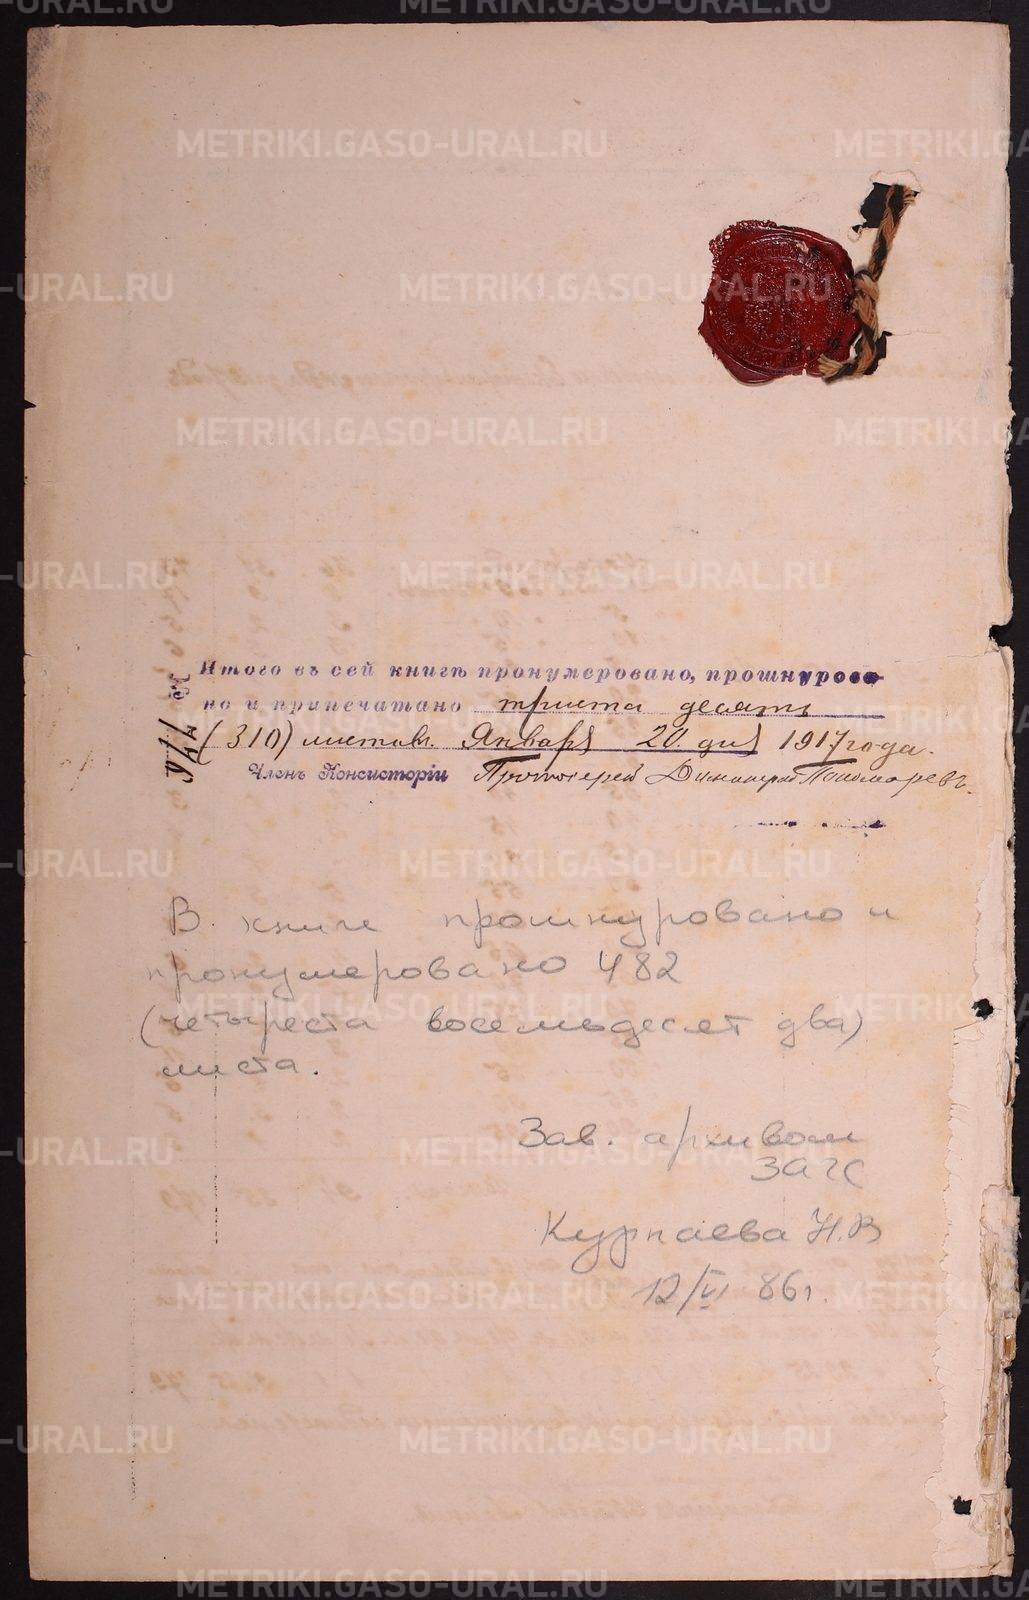 Итого въ сей книгѣ пронумеровано, прошнурова
но и припечатано триста десять
(310) листовъ. Января 20 дня 1917 года.
Членъ Консисторіи Протоіерей Димитрій Пономаревъ.
№
В книге прошнуровано и
пронумеровано 482
(четыреста восемьдесят два)
листа.
Зав. архивом
ЗАГС
Курпаева Н.В
12/VI 86г.
METRIKI.GASO-URAL.RU